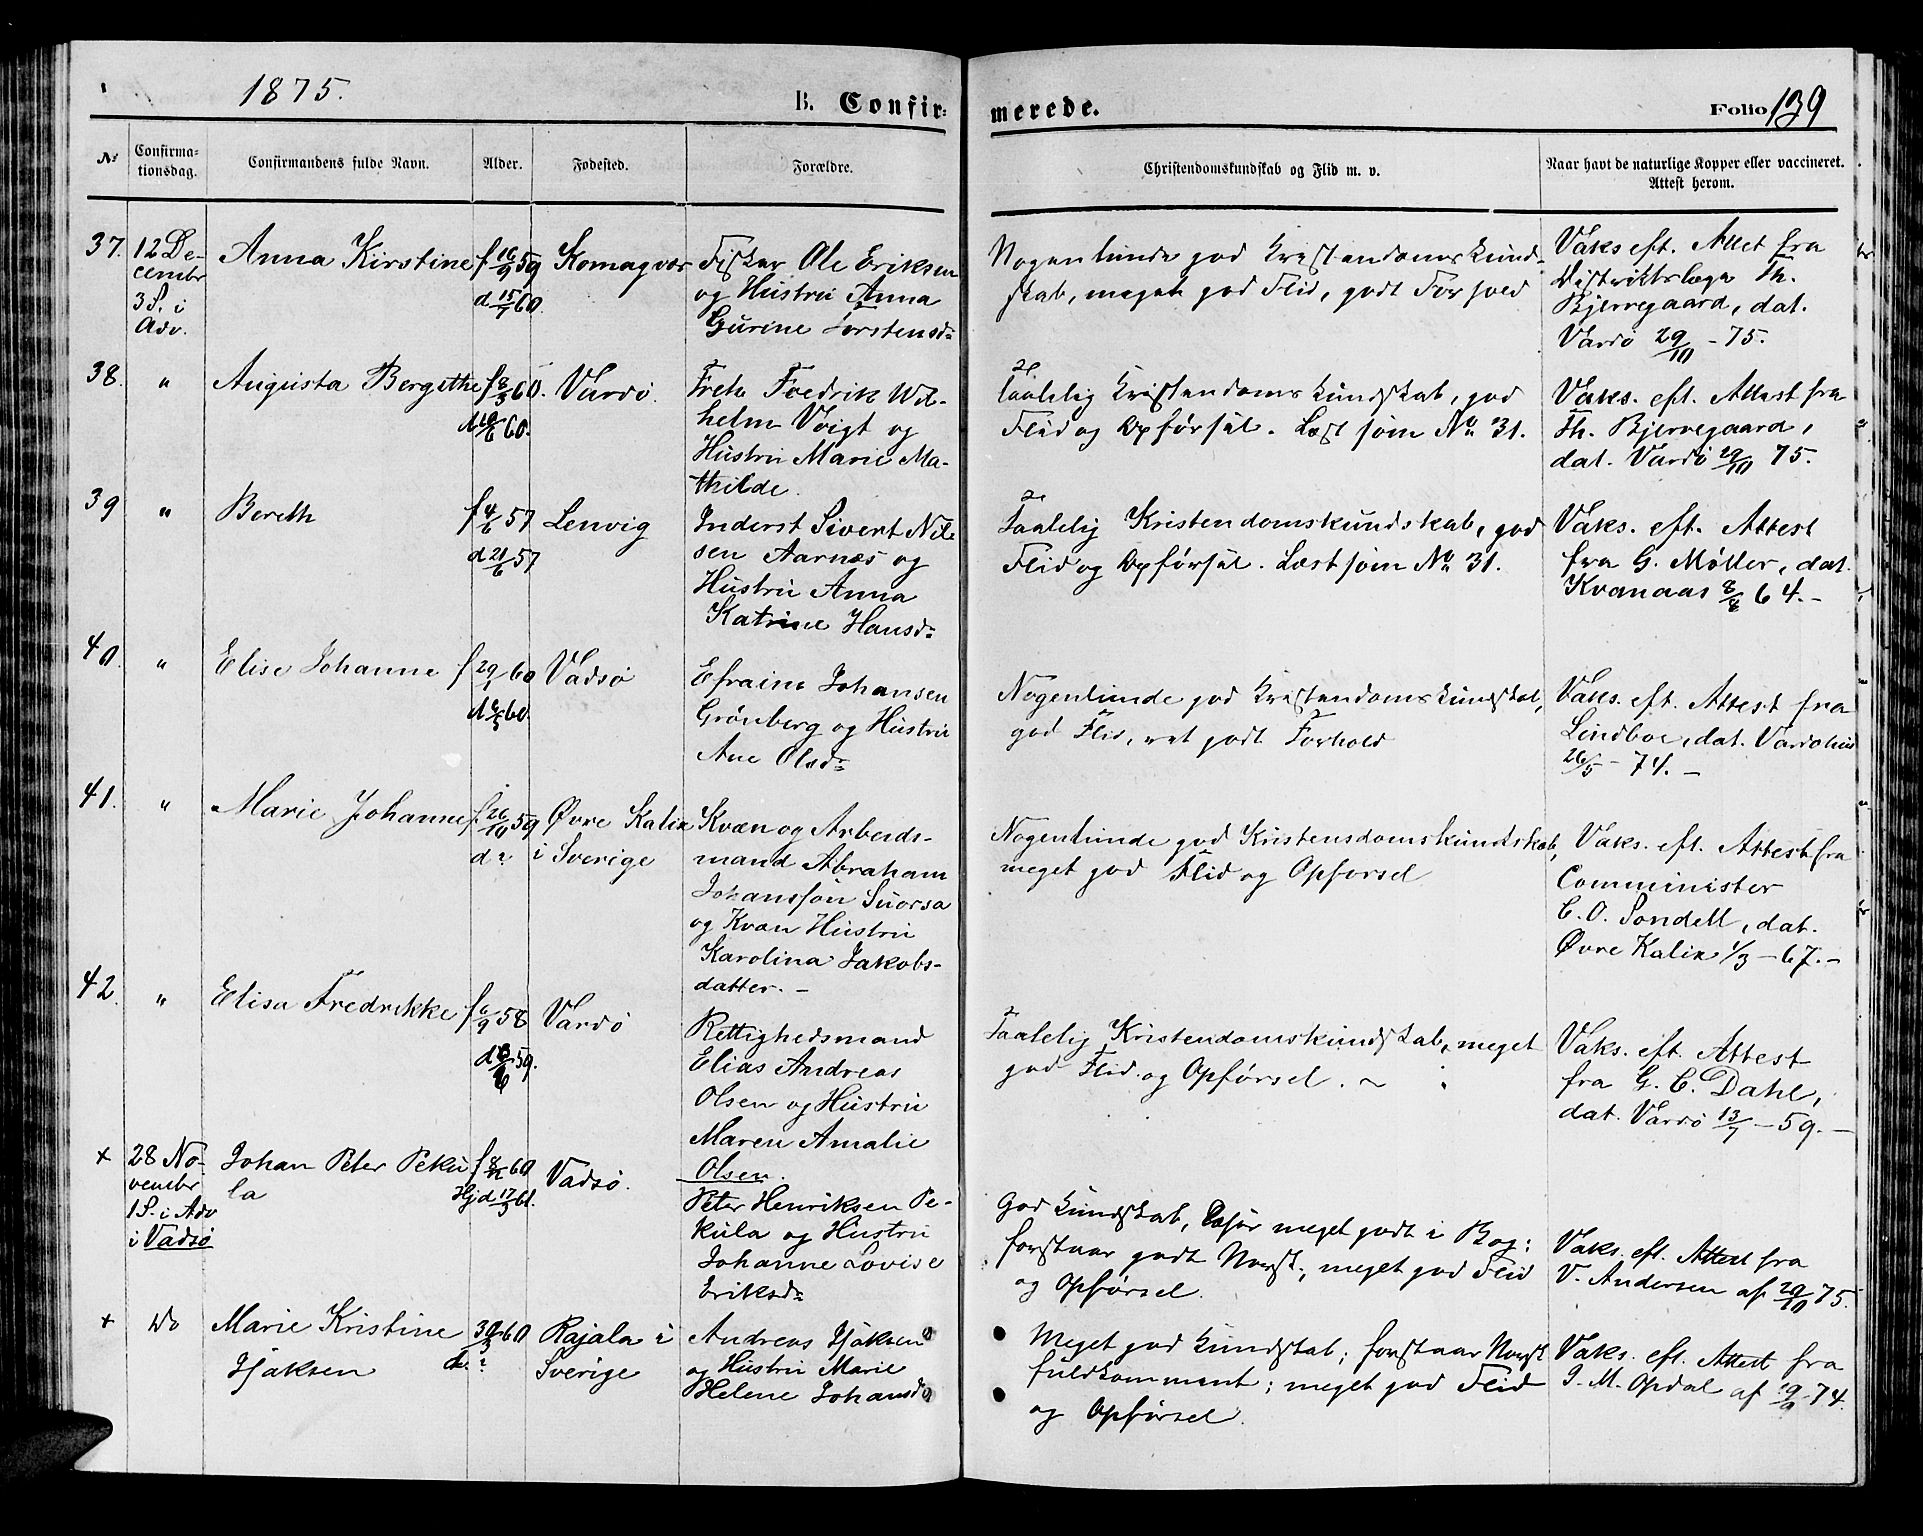 1875.
B. Confir-
merede.
Folio 139
No
Confirma-
tionsdag.
Confirmandens fulde Navn.
Alder.
Fødested.
Forældre.
Christendomskundskab og Flid m. v.
Naar havt de naturlige Kopper eller vaccineret.
Attest herom.
37.
12 De-
cembr
3 S. i
Adv.
Anna Kirstine
f 16/9 59
d 15/7 60.
Komagvær
Fisker Ole Eriksen
og Hustru Anna
Gurine Torstensd:
Nogenlunde god Kristendomskund-
skab, meget god Flid, godt Forhold
Vaks eft. Attet fra
Distriktslæge Th.
Bjerregaard, dat.
Vardö 29/10 - 75.
38.
"
Augusta Bergithe
f 8/3 60.
d 10/6 60.
Vardö.
Frek Fredrik Wil-
helm Voigt og
Hustru Marie Ma-
thilde.
Taalelig Kristendomskundskab, god
Flid og Opførsel. Læst som No 31.
Vaks. eft. Attest fra
Th. Bjerregaard,
dat. Vardö 29/10 75.
39
"
Bereth
f 4/6 57
d 21/6 57
Lenvig
Inderst Sivert Nil-
sen Aarnæs og
Hustru Anna
Katrine Hansd:
Taalelig Kristendomskundskab, god
Flid og Opførsel. Læst som No 31.
Vaks. eft. Attest
fra G. Møller, dat.
Kvanaas 8/8 64.-
40.
"
Elise Johanne
f 29/1 60
60.
Vadsö
Efraim Johansen
Grönberg og Hustru
Ane Olsd:
Nogenlunde god Kristendomskundskab,
god Flid, ret godt Forhold
Vaks. eft. Attest fra
Lindboe, dat. Vardöhus
26/5 - 74.-
41.
"
Marie Johanne
f. 26/10 59
d ?
Øvre Kalix
i Sverige
Kvæn og Arbeids-
mand Abraham
Johansson Suorsa
og Kvæn Hustru
Karolina Jakobs-
datter.-
Nogenlunde god Kristensdomskundskab,
meget god Flid og Opførsel
Vaks. eft. Attest fra
Comminister
C. O. Sondell, dat.
Øvre Kalix 1/3 - 67.-
42.
"
Elisa Fredrikke
f 6/9 58
59.
Vardö
Rettighedsmand
Elias Andreas
Olsen og Hustru
Maren Amalie
Olsen.
Taalelig Kristendomskundskab, meget
god Flid og Opførsel.
Vaks. eft. Attest
fra G. C. Dahl,
dat. Vardö 13/7 - 59.-
+
28 No-
vembr
1 S. i Adv
i Vadsö
Johan Peter Peku
la
f 8/12 60
Hjd 17/3 61.
Vadsö.
Peter Henriksen Pe-
kula og Hustru
Johanne Lovise
Eriksd:
God Kundskab, læser meget godt i Bog;
forstaar godt Norsk; meget god Flid
og Opførsel.
Vaks. eft. Attest fra
V. Andersen af 29/10 75.
+
Do
Marie Kristine
Isaksen
60
d. ?
Rajala i
Sverige
Andreas Isaksen
og Hustru Marie
Helene Johansd:
Meget god Kundskab; forstaar Norsk
fuldkomment; meget god Flid
og Opførsel.
Vaks. eft. Attest fra
J. M. Opdal af 74.